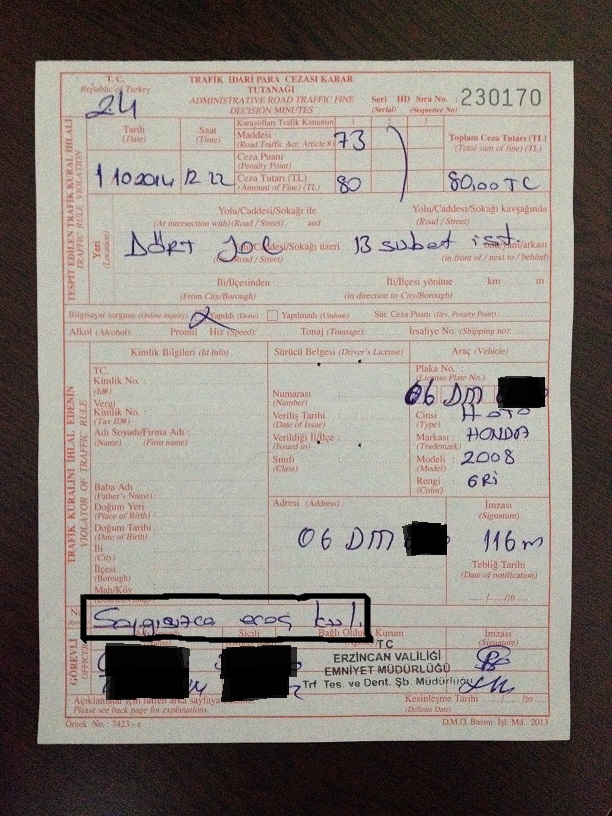 T. C.
Republic of Turkey
24
TRAFİK İDARİ PARA CEZASI KARAR
TUTANAĞI
ADMINISTRATIVE ROAD TRAFFIC FINE
DECISION MINUTES
Seri HD Sıra No. : 230170
(Serial) (Sequence No.)
TESPİT EDİLEN TRAFİK KURAL İHLALİ
TRAFFIC RULE VIOLATION
Tarih
(Date)
Saat
(Time)
Karayolları Trafik Kanunun
Maddesi
(Road Traffic Act: Article#)
73
Ceza Puanı
(Penalty Point)
Ceza Tutarı (TL)
(Amount of Fine) (TL)
80
Toplam Ceza Tutarı (TL)
(Total sum of fine) (TL)
1 10 2014 12 22
80,00 TC
Yeri
(Location)
Yolu/Caddesi/Sokağı ile
(At intersection with) (Road / Street) and
Yolu/Caddesi/Sokağı kavşağında
(Road / Street)
DÖRT YOL
13 şubat ist
/Caddesi/Sokağı üzeri
(Road / Street)
önü/yanı/arkası
(in front of / next to / behind)
İli/İlçesinden
(From City/Borough)
İli/İlçesi yönüne km m
(in direction to City/Borough)
Bilgisayar sorgusu (Online inquiry) Yapıldı (Done) Yapılmadı (Undone) Sür. Ceza Puanı (Drv. Penalty Point) :
Alkol (Alcohol): Promil Hız (Speed): Tonaj (Tonnage): İrsaliye No. (Shipping no):
TRAFİK KURALINI İHLAL EDENİN
VIOLATOR OF TRAFFIC RULE
Kimlik Bilgileri (Id Info)
TC.
Kimlik No. :
(Id#)
Vergi
Kimlik No. :
(Tax ID#)
Adı Soyadı/Firma Adı :
(Name) (Firm name)
Baba Adı
(Father's Name) :
Doğum Yeri
(Place of Birth) :
Doğum Tarihi :
(Date of Birth)
İli :
(City)
İlçesi :
(Borough)
Mah/Köy
Sürücü Belgesi (Driver's License)
Numarası :
(Number)
Veriliş Tarihi :
(Date of Issue)
Verildiği İl/İlçe :
(Issued in)
Sınıfı :
(Class)
Araç (Vehicle)
Plaka No.
(License Plate No.)
06 DM
Cinsi : MOTO
(Type)
Markası : HONDA
(Trademark)
Modeli : 2008
(Model)
Rengi : GRİ
(Color)
Adresi (Address) :
06 DM
İmzası
(Signature)
116m
Tebliğ Tarihi
(Date of notification)
..... / ..... /20 .....
Saygısızca araç kul.
GÖREVLİ
OFFICER
Sicili
Bağlı Olduğu Kurum
İmzası
(Signature)
T C
ERZİNCAN VALİLİĞİ
EMNİYET MÜDÜRLÜĞÜ
Trf. Tes. ve Dent. Şb. Müdürlüğü
Açıklamalar için lütfen arka sayfaya
Please see back page for explanations.
Kesinleşme Tarihi ...... / ...... /20 ......
(Definite Date)
Örnek No. : 7423 - e
D.M.O. Basım İşl. Md. 2013